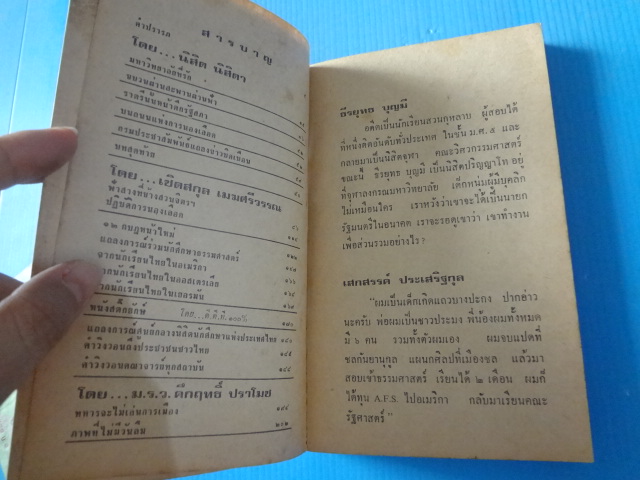 สารบาญ
คำปรารภ
โดย...นิสิต นิสิตา
มหาวิทยาลัยที่รัก
ขบวนผ่านสะพานผ่านฟ้า
ราตรีนั้นหน้าตึกรัฐสภา
บนถนนแห่งการนองเลือด
กรมประชาสัมพันธ์แถลงข่าวบิดเบือน
บทสุดท้าย
โดย...เชิดสกุล เมฆศรีวรรณ
ฟ้าสางที่ข้างสวนจิตรฯ ๙๖
ปฏิบัติการนองเลือด
๑๒ กบฏหัวใหม่ ๑๑๔
แถลงการณ์ร่วมนักศึกษาธรรมศาสตร์
จากนักเรียนไทยในอเมริกา
จากนักเรียนไทยในออสเตรเลีย
จากนักเรียนไทยในเยอรมัน
หนังสือยักษ์ โดย...ท.ท.ท. ๑๐๐%
แถลงการณ์ศูนย์กลางนิสิตนักศึกษาแห่งประเทศไทย
คำวิงวอนถึงประชาชนชาวไทย
คำวิงวอนคณาจารย์ทุกสถาบัน
โดย...ม.ร.ว.คึกฤทธิ์ ปราโมช
ทหารจะไม่เล่นการเมือง ๑๙๔
ภาพที่ไม่มีวันลืม ๒๑๒
ธีรยุทธ บุญมี
อดีตเป็นนักเรียนสวนกุหลาบ ผู้สอบได้
ที่หนึ่งติดอันดับทั่วประเทศ ในชั้น ม.ศ. ๕ และ
กลายมาเป็นนิสิตจุฬา คณะวิศวกรรมศาสตร์
ขณะนี้ ธีรยุทธ บุญมี เป็นนิสิตปริญญาโท อยู่
ที่จุฬาลงกรณ์มหาวิทยาลัย เด็กหนุ่มผู้มีบุคลิก
ไม่เหมือนใคร เราหวังว่าเขาจะได้เป็นนายก
รัฐมนตรีในอนาคต เราจะรอดูเขาว่า เขาทำงาน
เพื่อส่วนรวมอย่างไร?
เสกสรรค์ ประเสริฐกุล
"ผมเป็นเด็กเกิดแถวบางปะกง ปากอ่าว
นะครับ พ่อผมเป็นชาวประมง พี่น้องผมทั้งหมด
มี ๖ คน รวมทั้งตัวผมเอง ผมจบแปดที่
ชลกันยานุกูล แผนกศิลป์ที่เมืองชล แล้วมา
สอบเข้าธรรมศาสตร์ เรียนได้ ๒ เดือน ผมก็
ได้ทุน A.F.S. ไปอเมริกา กลับมาเรียนคณะ
รัฐศาสตร์"